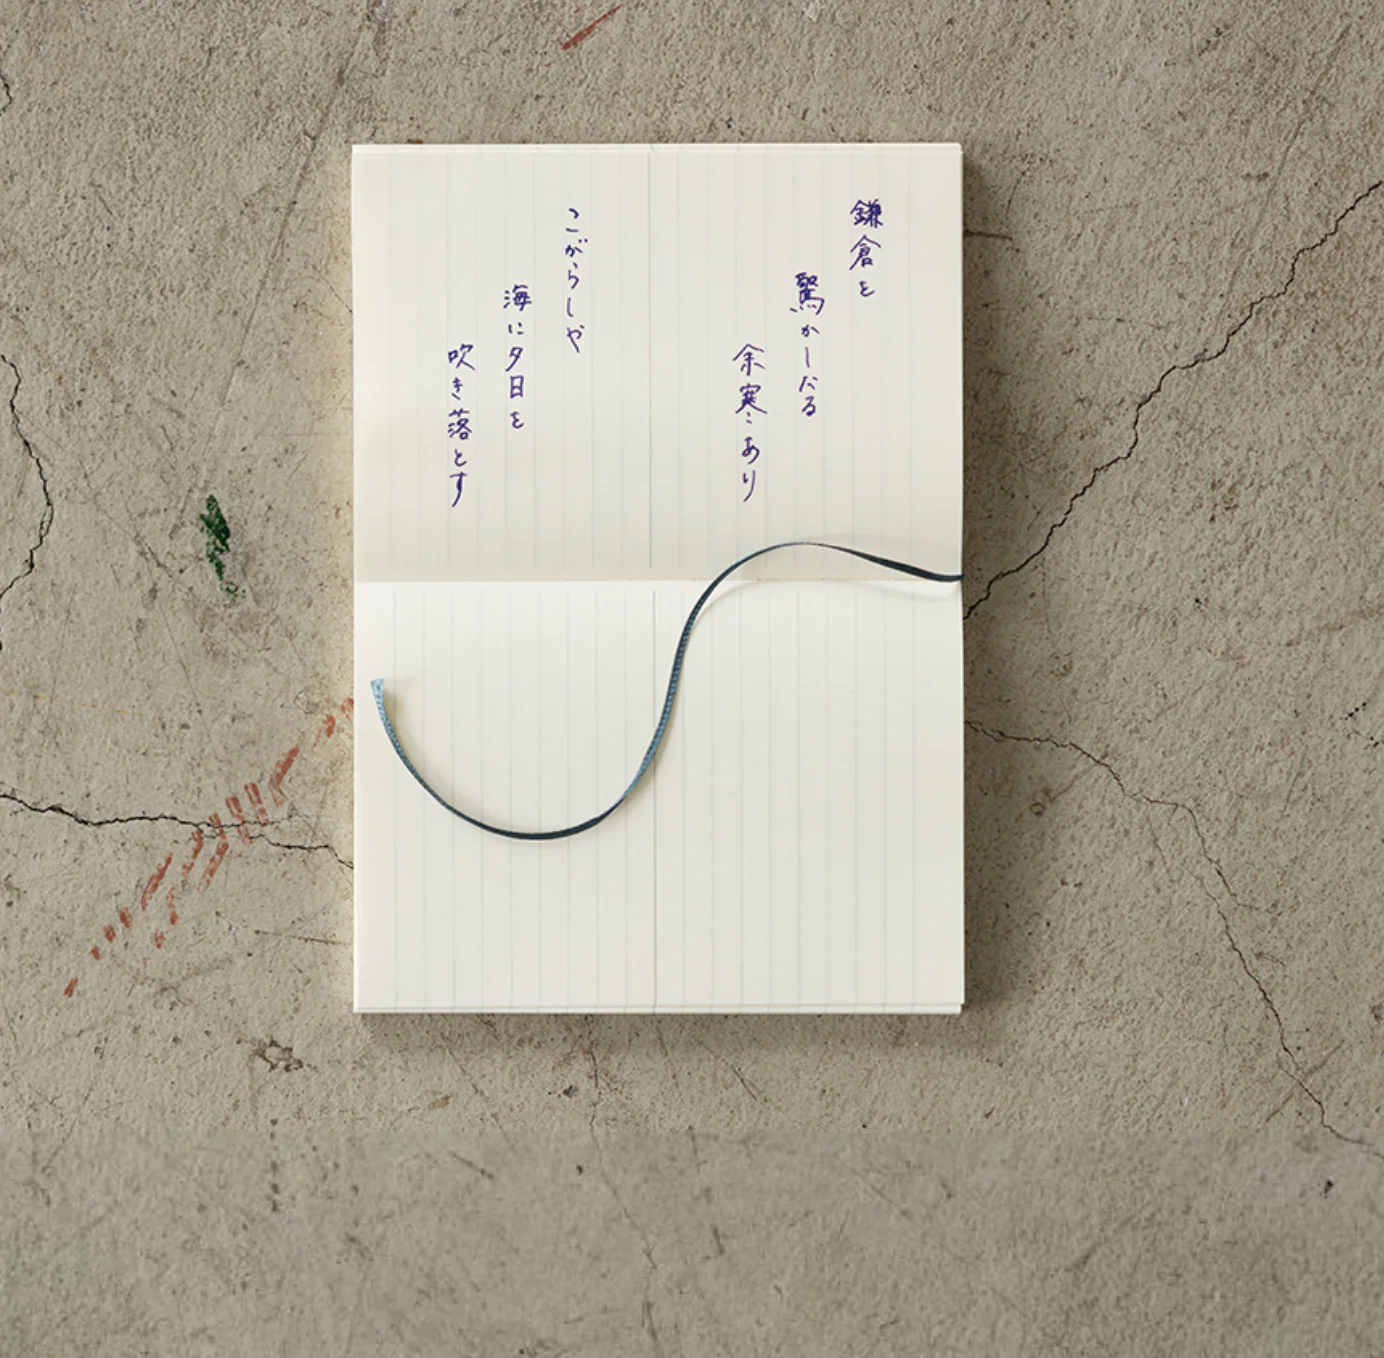 鎌倉を
驚かしたる
余寒あり
こがらしや
海に夕日を
吹き落とす